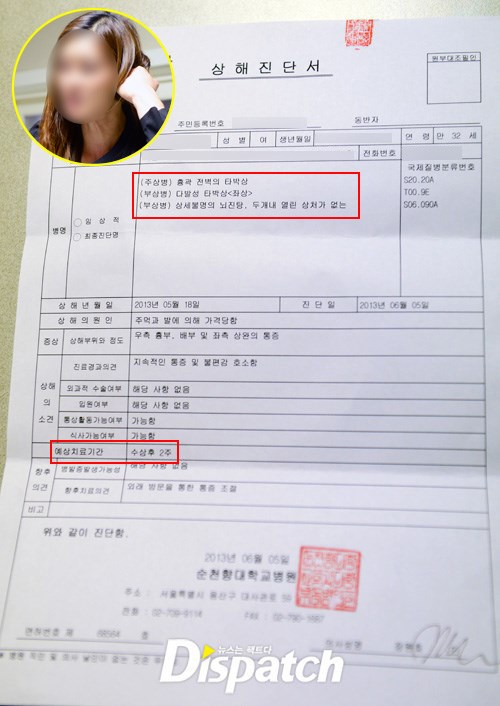 상해진단서
원부대조필인
주민등록번호 동반자
성별 여 생년월일 연령 만 32 세
전화번호
병명
임상적
최종진단명
(주상병) 흉곽 전벽의 타박상
(부상병) 다발성 타박상<좌상>
(부상병) 상세불명의 뇌진탕, 두개내 열린 상처가 없는
국제질병분류번호
S20.20A
T00.9E
S06.090A
상해년월일 2013년 05월 18일 진단일 2013년 06월 05일
상해의원인 주먹과 발에 의해 가격당함
증상 상해부위와 정도 우측 흉부, 배부 및 좌측 상완의 통증
상해의 소견
진료경과의견 지속적인 통증 및 불편감 호소함
외과적 수술여부 해당 사항 없음
입원여부 해당 사항 없음
통상활동가능여부 가능함
식사가능여부 가능함
예상치료기간 수상후 2주
향후의견
병발증발생가능성 해당 사항 없음
향후치료의견 외래 방문을 통한 통증 조절
비고
위와 같이 진단함.
2013년 06월 05일
순천향대학교병원
주소 : 서울특별시 용산구 대사관로 59
전화 : 02-709-9114 FAX :
면허번호 제 호 의사성명
뉴스는 팩트다
Dispatch